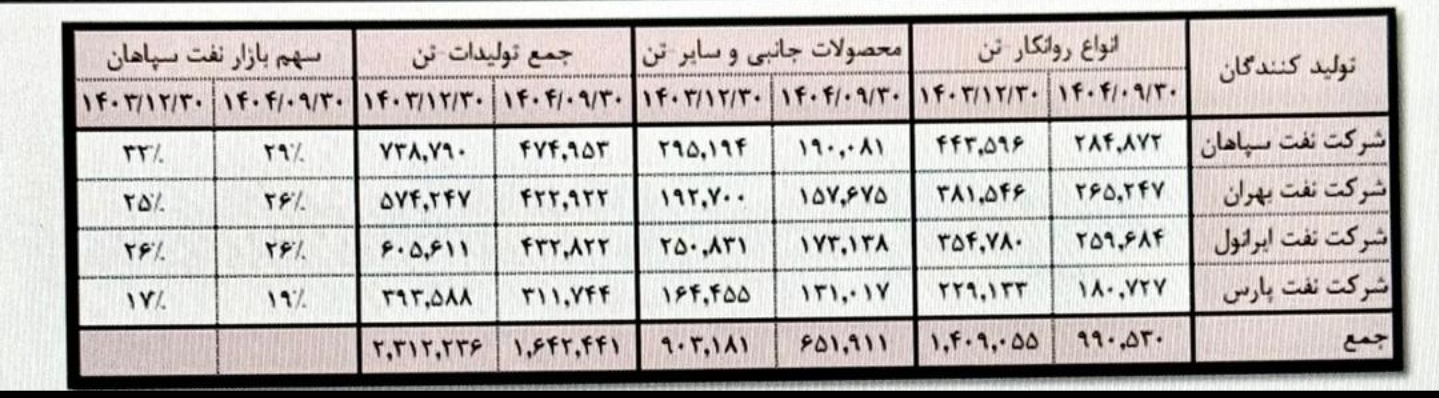 تولید کنندگان انواع روانکار-تن محصولات جانبی و سایر-تن جمع تولیدات-تن سهم بازار نفت سپاهان
۱۴۰۴/۰۹/۳۰ ۱۴۰۳/۱۲/۳۰ ۱۴۰۴/۰۹/۳۰ ۱۴۰۳/۱۲/۳۰ ۱۴۰۴/۰۹/۳۰ ۱۴۰۳/۱۲/۳۰ ۱۴۰۴/۰۹/۳۰ ۱۴۰۳/۱۲/۳۰
شرکت نفت سپاهان ۲۸۴,۸۷۲ ۴۴۳,۵۹۶ ۱۹۰,۰۸۱ ۲۹۵,۱۹۴ ۴۷۴,۹۵۳ ۷۳۸,۷۹۰ ۲۹٪ ۳۲٪
شرکت نفت بهران ۲۶۵,۲۴۷ ۳۸۱,۵۴۶ ۱۵۷,۶۷۵ ۱۹۲,۷۰۰ ۴۲۲,۹۲۲ ۵۷۴,۲۴۷ ۲۶٪ ۲۵٪
شرکت نفت ایرانول ۲۵۹,۶۸۴ ۳۵۴,۷۸۰ ۱۷۳,۱۳۸ ۲۵۰,۸۳۱ ۴۳۲,۸۲۲ ۶۰۵,۶۱۱ ۲۶٪ ۲۶٪
شرکت نفت پارس ۱۸۰,۷۲۷ ۲۲۹,۱۳۳ ۱۳۱,۰۱۷ ۱۶۴,۴۵۵ ۳۱۱,۷۴۴ ۳۹۳,۵۸۸ ۱۹٪ ۱۷٪
جمع ۹۹۰,۵۳۰ ۱,۴۰۹,۰۵۵ ۶۵۱,۹۱۱ ۹۰۳,۱۸۱ ۱,۶۴۲,۴۴۱ ۲,۳۱۲,۲۳۶